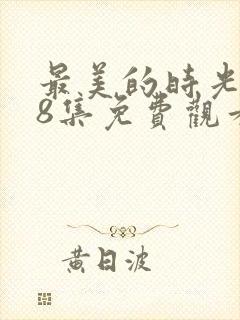 最美的時光
8集免費觀
黃日波